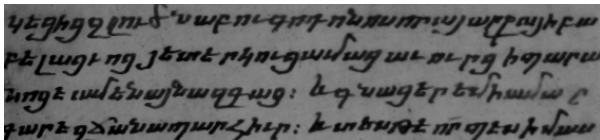 կեցից զլուծ նաբուգոդոնոսորայ արքայի բա
բելացւոց յետ երկուց ամաց աւուրց ի պարա
նոցէ ամենայն ազգաց։ և գնաց երեմիա մար
գարէ զճանապարհ իւր։ և տես թէ որպէս իմաս